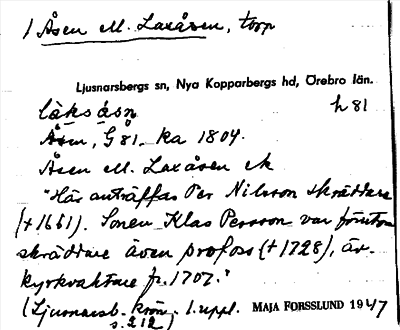 1 Åsen el. Laxåsen, torp
Ljusnarsbergs sn, Nya Kopparbergs hd, Örebro län.
läksåsn h 81
Åsen, G 81. ka 1804.
Åsen el. Laxåsen ek
"Här anträffas Per Nilsson skräddare
(† 1661). Sonen Klas Persson var förutom
skräddare även profoss († 1728), äv.
kyrkvaktare fr. 1707."
(Ljusnarsb. krön. 1. uppl. MAJA FORSSLUND 1947
s. 212)